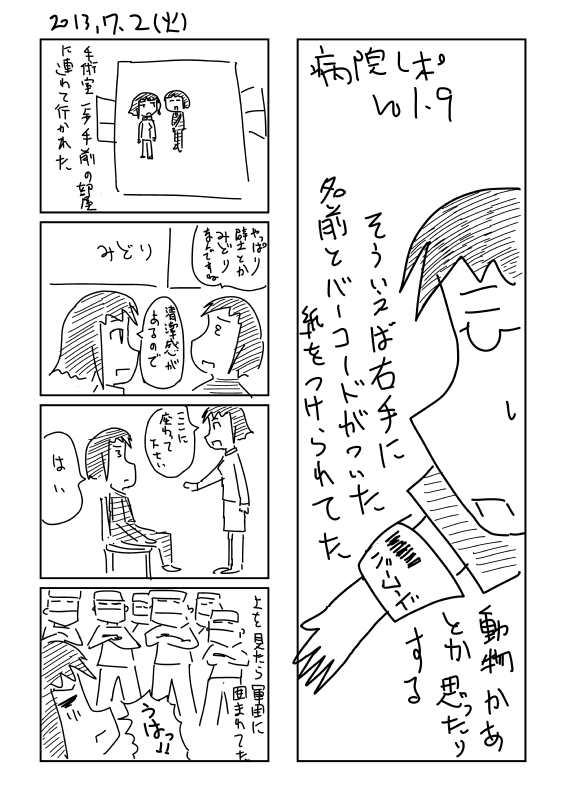 2013.7.2(火)
病院レポ
vol.9
そういえば右手に
名前とバーコードがついた
紙をつけられてた
動物かあ
とか思ったり
する
手術室一歩手前の部屋
に連れて行かれた
やっぱり
壁とか
みどり
なんですね
みどり
清潔感が
あるので
ここに
座って
ください
はい
上を見たら軍団に
囲まれてた
うはっ!!